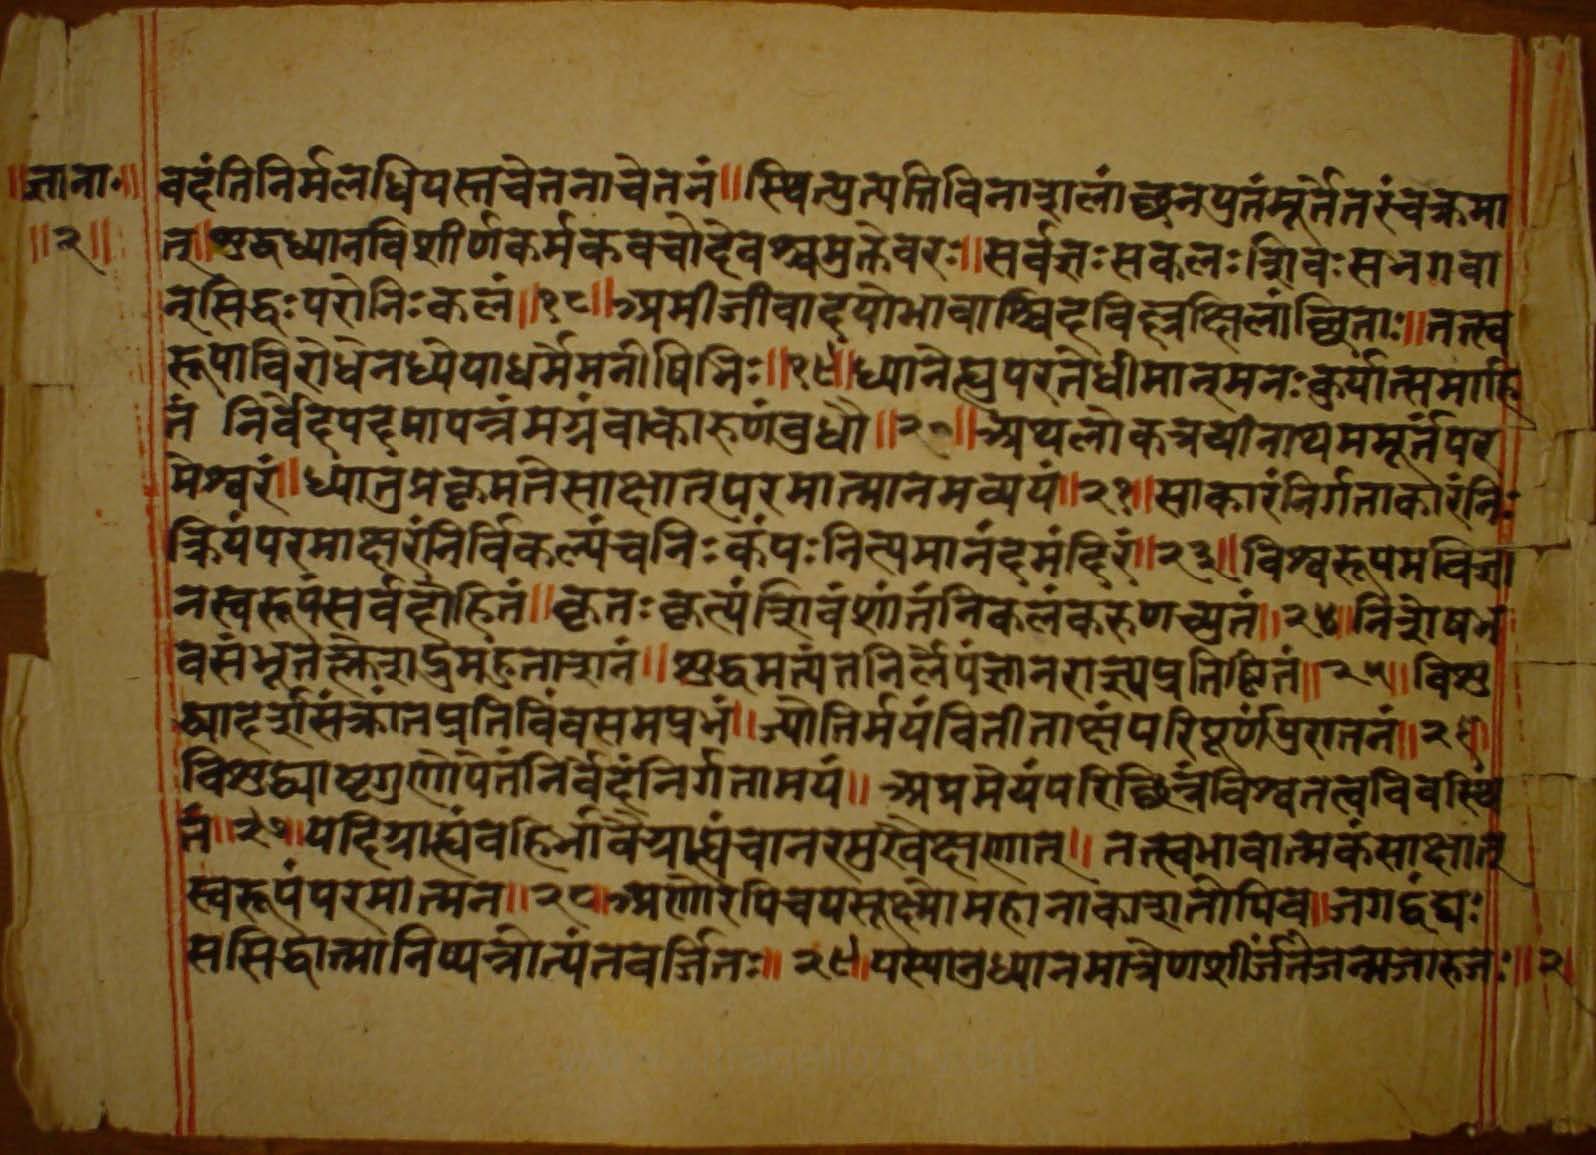 ॥ज्ञाना॰॥ वदंति निर्मलधियस्तचेतनाचेतनं॥स्थित्युत्पत्तिविनाशलांछनयुतंमूर्तेतरंचक्रमा
॥२॥ त्॥शुद्धध्यानविशीर्णकर्मकवचोदेवश्चमुक्तेवरः॥सर्वज्ञःसकलःशिवःसभगवा
न्सिद्धःपरोनिःकलं॥१८॥अमीजीवादयोभावाश्चिदचिल्लक्षलांछिताः॥तत्स्व
रूपाविरोधेनध्येयाधर्मेमनीषिभिः॥१९॥ध्यानेह्युपरतेधीमान्मनःकुर्यात्समाहि
तं निर्वेदपदमापन्नंमग्नंवाकारुणंबुधौ॥२०॥अथलोकत्रयीनाथममूर्तंपर
मेश्वरं॥ध्यातुंप्रक्रमतेसाक्षात्परमात्मानमव्ययं॥२१॥साकारंनिर्गताकारंनिः
क्रियंपरमाक्षरंनिर्विकल्पंचनिःकंपःनित्यमानंदमंदिरं॥२३॥विश्वरूपमविज्ञा
नस्वरूपंसर्वदोदितं॥कृतःकृत्यंशिवंशांतंनिकलंकरुणच्युतं॥२४॥निशेषभ
वसंभूतक्लेशद्रुमहुताशनं॥शुद्धमत्यंतनिर्लेपंज्ञानराज्यप्रतिष्ठितं॥२५॥विशु
द्धादर्शसंक्रांतप्रतिविंवसमप्रभं॥ज्योतिर्मयंवितीताक्षंपरिपूर्णंपुरातनं॥२६॥
विशुद्धाष्टगुणोपेतंनिर्वदंनिर्गतामयं॥अप्रमेयंपरिछिन्नंविश्वतत्वविवस्थि
तं॥२७॥यदिग्राह्यंवहिर्भावैग्राह्यंचान्तरमुखैक्षणात्॥तत्स्वभावात्मकंसाक्षात्
स्वरूपंपरमात्मन॥२८॥अणोरपिचयसूक्ष्मोमहानाकाशतोपिव॥जगद्वंद्यः
ससिद्धात्मानिष्पन्नोत्यंतवर्जितः॥२९॥यस्यानुध्यानमात्रेणशीर्जंतेजन्मजारुजः॥२